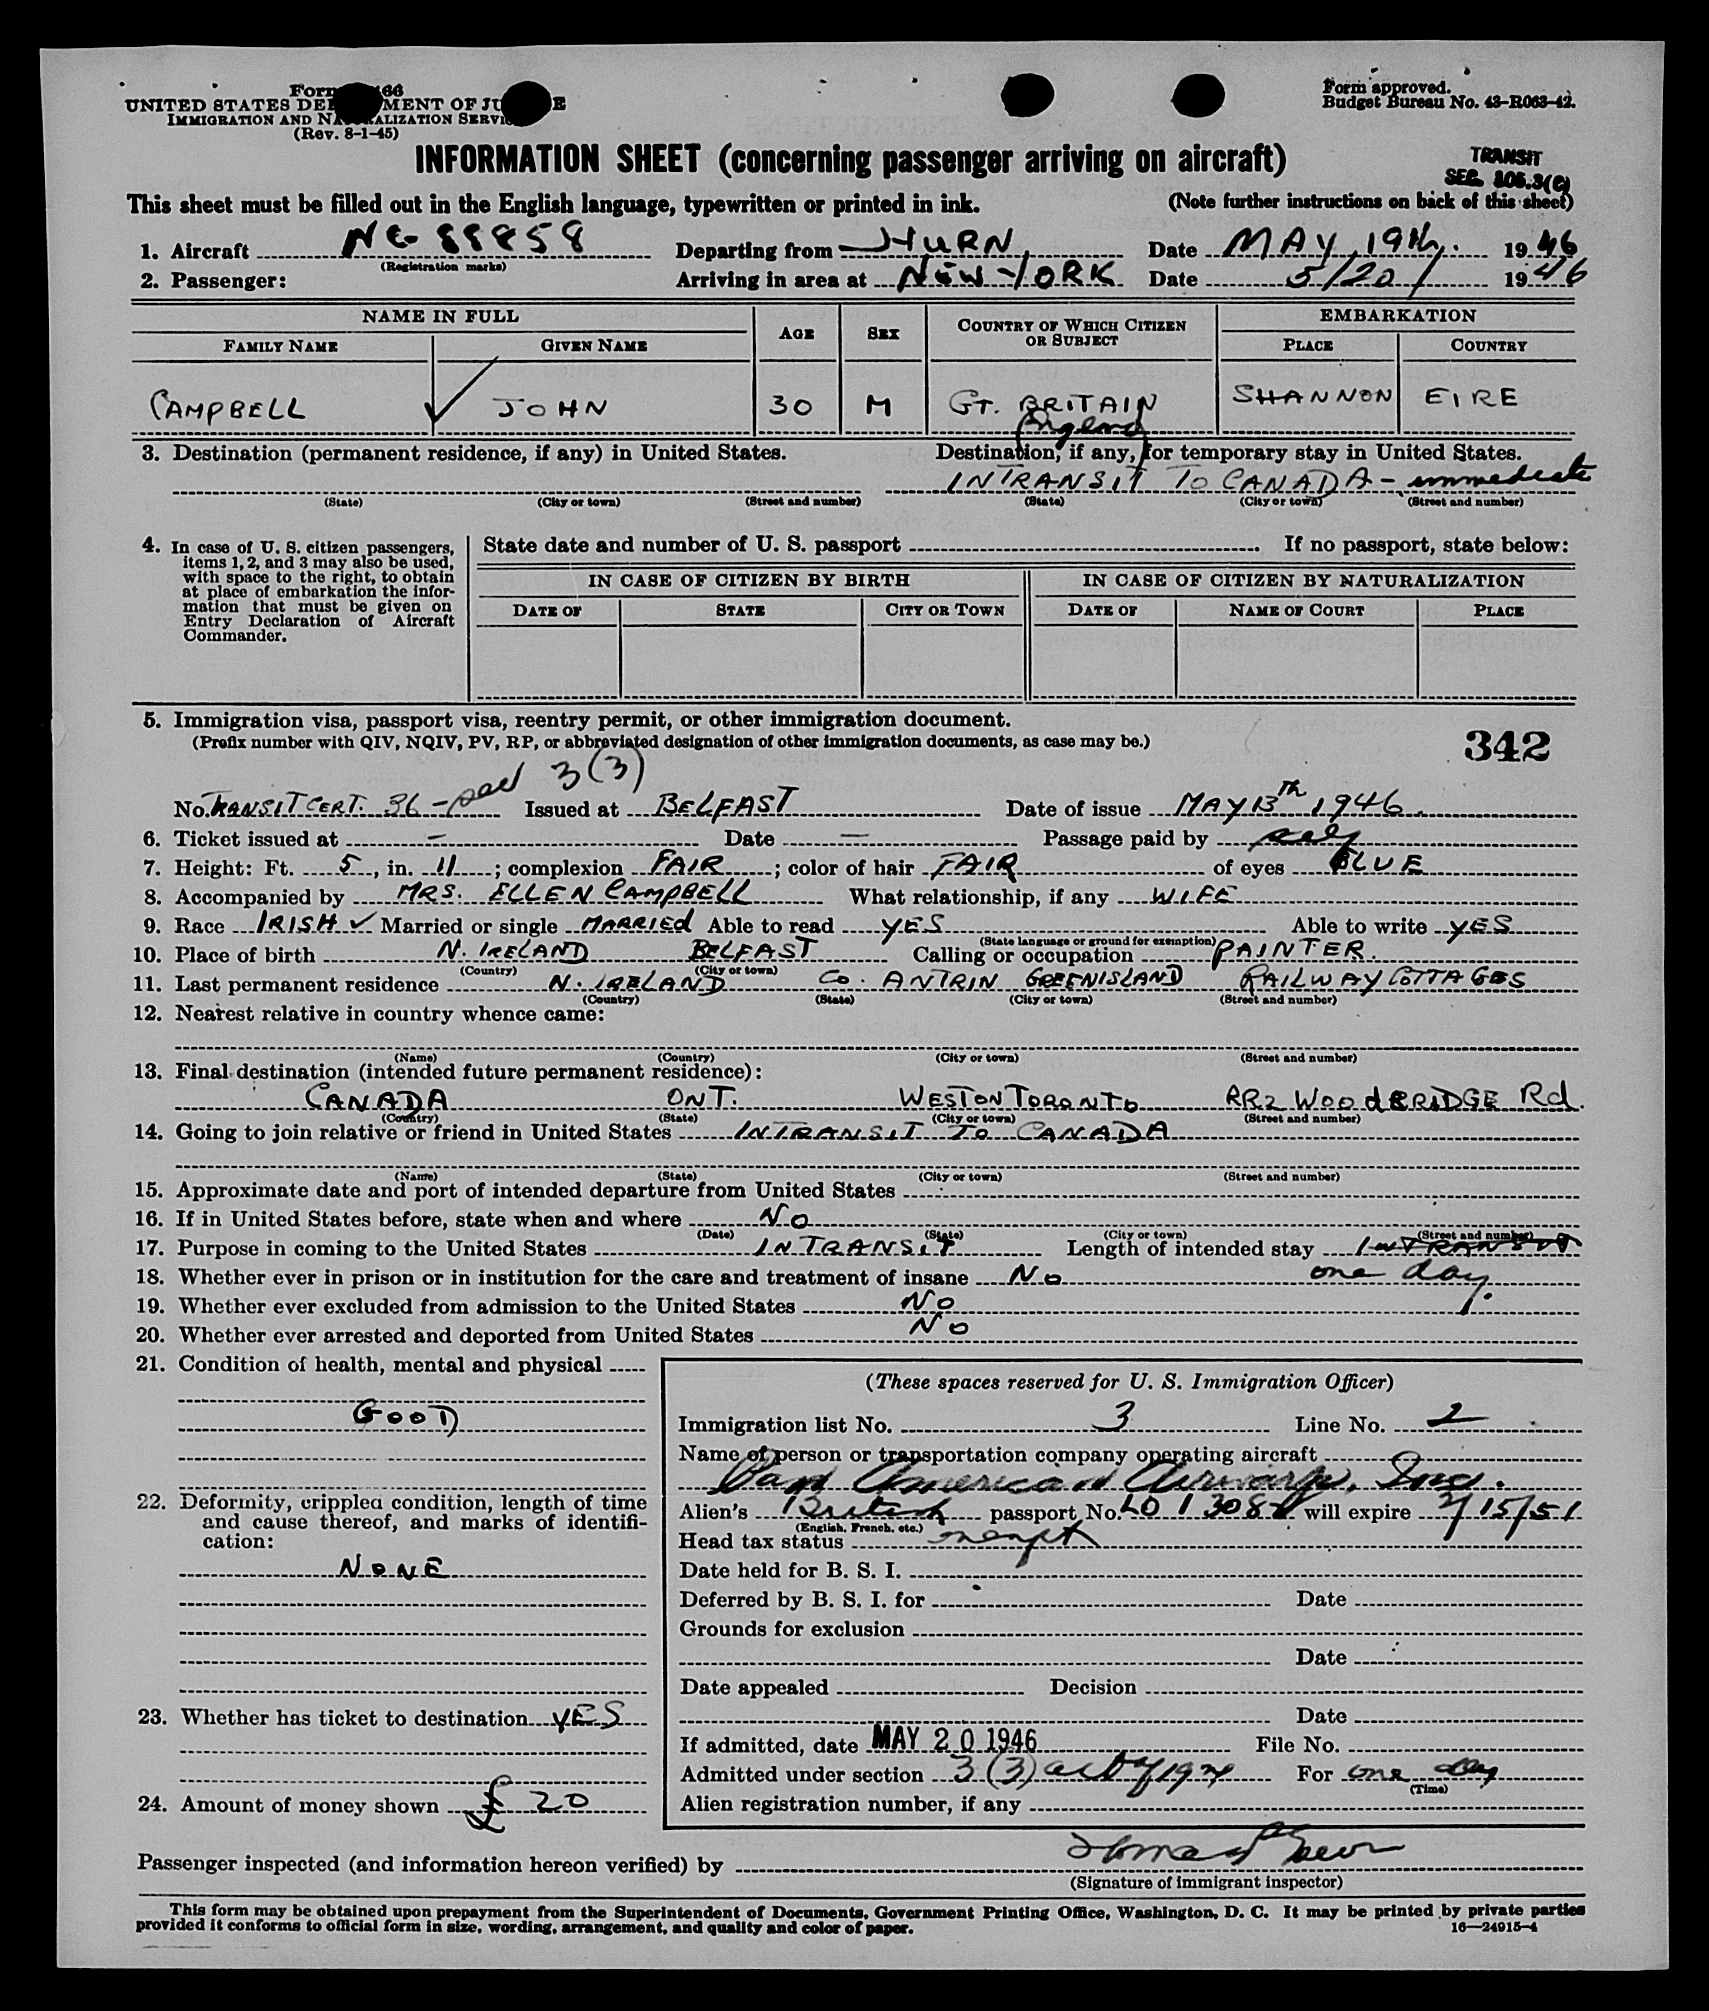 Form 66
UNITED STATES DE MENT OF JU E
IMMIGRATION AND NA ALIZATION SERVI
(Rev. 8-1-45)
Form approved.
Budget Bureau No. 43-R063-42.
INFORMATION SHEET (concerning passenger arriving on aircraft)
TRANSIT
SEC. 105.3(C)
This sheet must be filled out in the English language, typewritten or printed in ink. (Note further instructions on back of this sheet)
1. Aircraft NC 88858 Departing from HURN Date MAY 19th. 1946
(Registration marks)
2. Passenger: Arriving in area at NEW YORK Date 5/20/ 1946
NAME IN FULL AGE SEX COUNTRY OF WHICH CITIZEN OR SUBJECT EMBARKATION
FAMILY NAME GIVEN NAME PLACE COUNTRY
CAMPBELL JOHN 30 M GT. BRITAIN SHANNON EIRE
(England)
3. Destination (permanent residence, if any) in United States. Destination, if any, for temporary stay in United States.
INTRANSIT TO CANADA - immediate
(State) (City or town) (Street and number) (State) (City or town) (Street and number)
4. In case of U. S. citizen passengers, items 1, 2, and 3 may also be used, with space to the right, to obtain at place of embarkation the information that must be given on Entry Declaration of Aircraft Commander.
State date and number of U. S. passport If no passport, state below:
IN CASE OF CITIZEN BY BIRTH IN CASE OF CITIZEN BY NATURALIZATION
DATE OF STATE CITY OR TOWN DATE OF NAME OF COURT PLACE
5. Immigration visa, passport visa, reentry permit, or other immigration document.
(Prefix number with QIV, NQIV, PV, RP, or abbreviated designation of other immigration documents, as case may be.)
342
3(3)
No. TRANSIT CERT. 36 - Issued at BELFAST Date of issue MAY 13th 1946.
6. Ticket issued at - Date - Passage paid by self
7. Height: Ft. 5, in. 11; complexion FAIR; color of hair FAIR of eyes BLUE
8. Accompanied by MRS. ELLEN CAMPBELL What relationship, if any WIFE
9. Race IRISH ✓ Married or single MARRIED Able to read YES Able to write YES
(State language or ground for exemption)
10. Place of birth N. IRELAND BELFAST Calling or occupation PAINTER.
(Country) (City or town)
11. Last permanent residence N. IRELAND CO. ANTRIN GREENISLAND RAILWAY COTTAGES
(Country) (State) (City or town) (Street and number)
12. Nearest relative in country whence came:
(Name) (Country) (City or town) (Street and number)
13. Final destination (intended future permanent residence):
CANADA ONT. WESTON TORONTO RR2 WOODBRIDGE Rd.
(Country) (State) (City or town) (Street and number)
14. Going to join relative or friend in United States INTRANSIT TO CANADA
(Name) (State) (City or town) (Street and number)
15. Approximate date and port of intended departure from United States
16. If in United States before, state when and where NO
(Date) (State) (City or town) (Street and number)
17. Purpose in coming to the United States INTRANSIT Length of intended stay INTRANSIT
one day.
18. Whether ever in prison or in institution for the care and treatment of insane NO
19. Whether ever excluded from admission to the United States NO
20. Whether ever arrested and deported from United States NO
21. Condition of health, mental and physical
GOOD
22. Deformity, crippled condition, length of time and cause thereof, and marks of identification:
NONE
23. Whether has ticket to destination YES
24. Amount of money shown £ 20
(These spaces reserved for U. S. Immigration Officer)
Immigration list No. 3 Line No. 2
Name of person or transportation company operating aircraft
Pan American Airways, Inc.
Alien's British passport No. will expire 3/15/51
(English, French, etc.)
Head tax status exempt
Date held for B. S. I.
Deferred by B. S. I. for Date
Grounds for exclusion
Date
Date appealed Decision
Date
If admitted, date MAY 20 1946 File No.
Admitted under section 3(3) act of 1924 For one day
(Time)
Alien registration number, if any
Passenger inspected (and information hereon verified) by
(Signature of immigrant inspector)
This form may be obtained upon prepayment from the Superintendent of Documents, Government Printing Office, Washington, D. C. It may be printed by private parties
provided it conforms to official form in size, wording, arrangement, and quality and color of paper. 16—24915-4